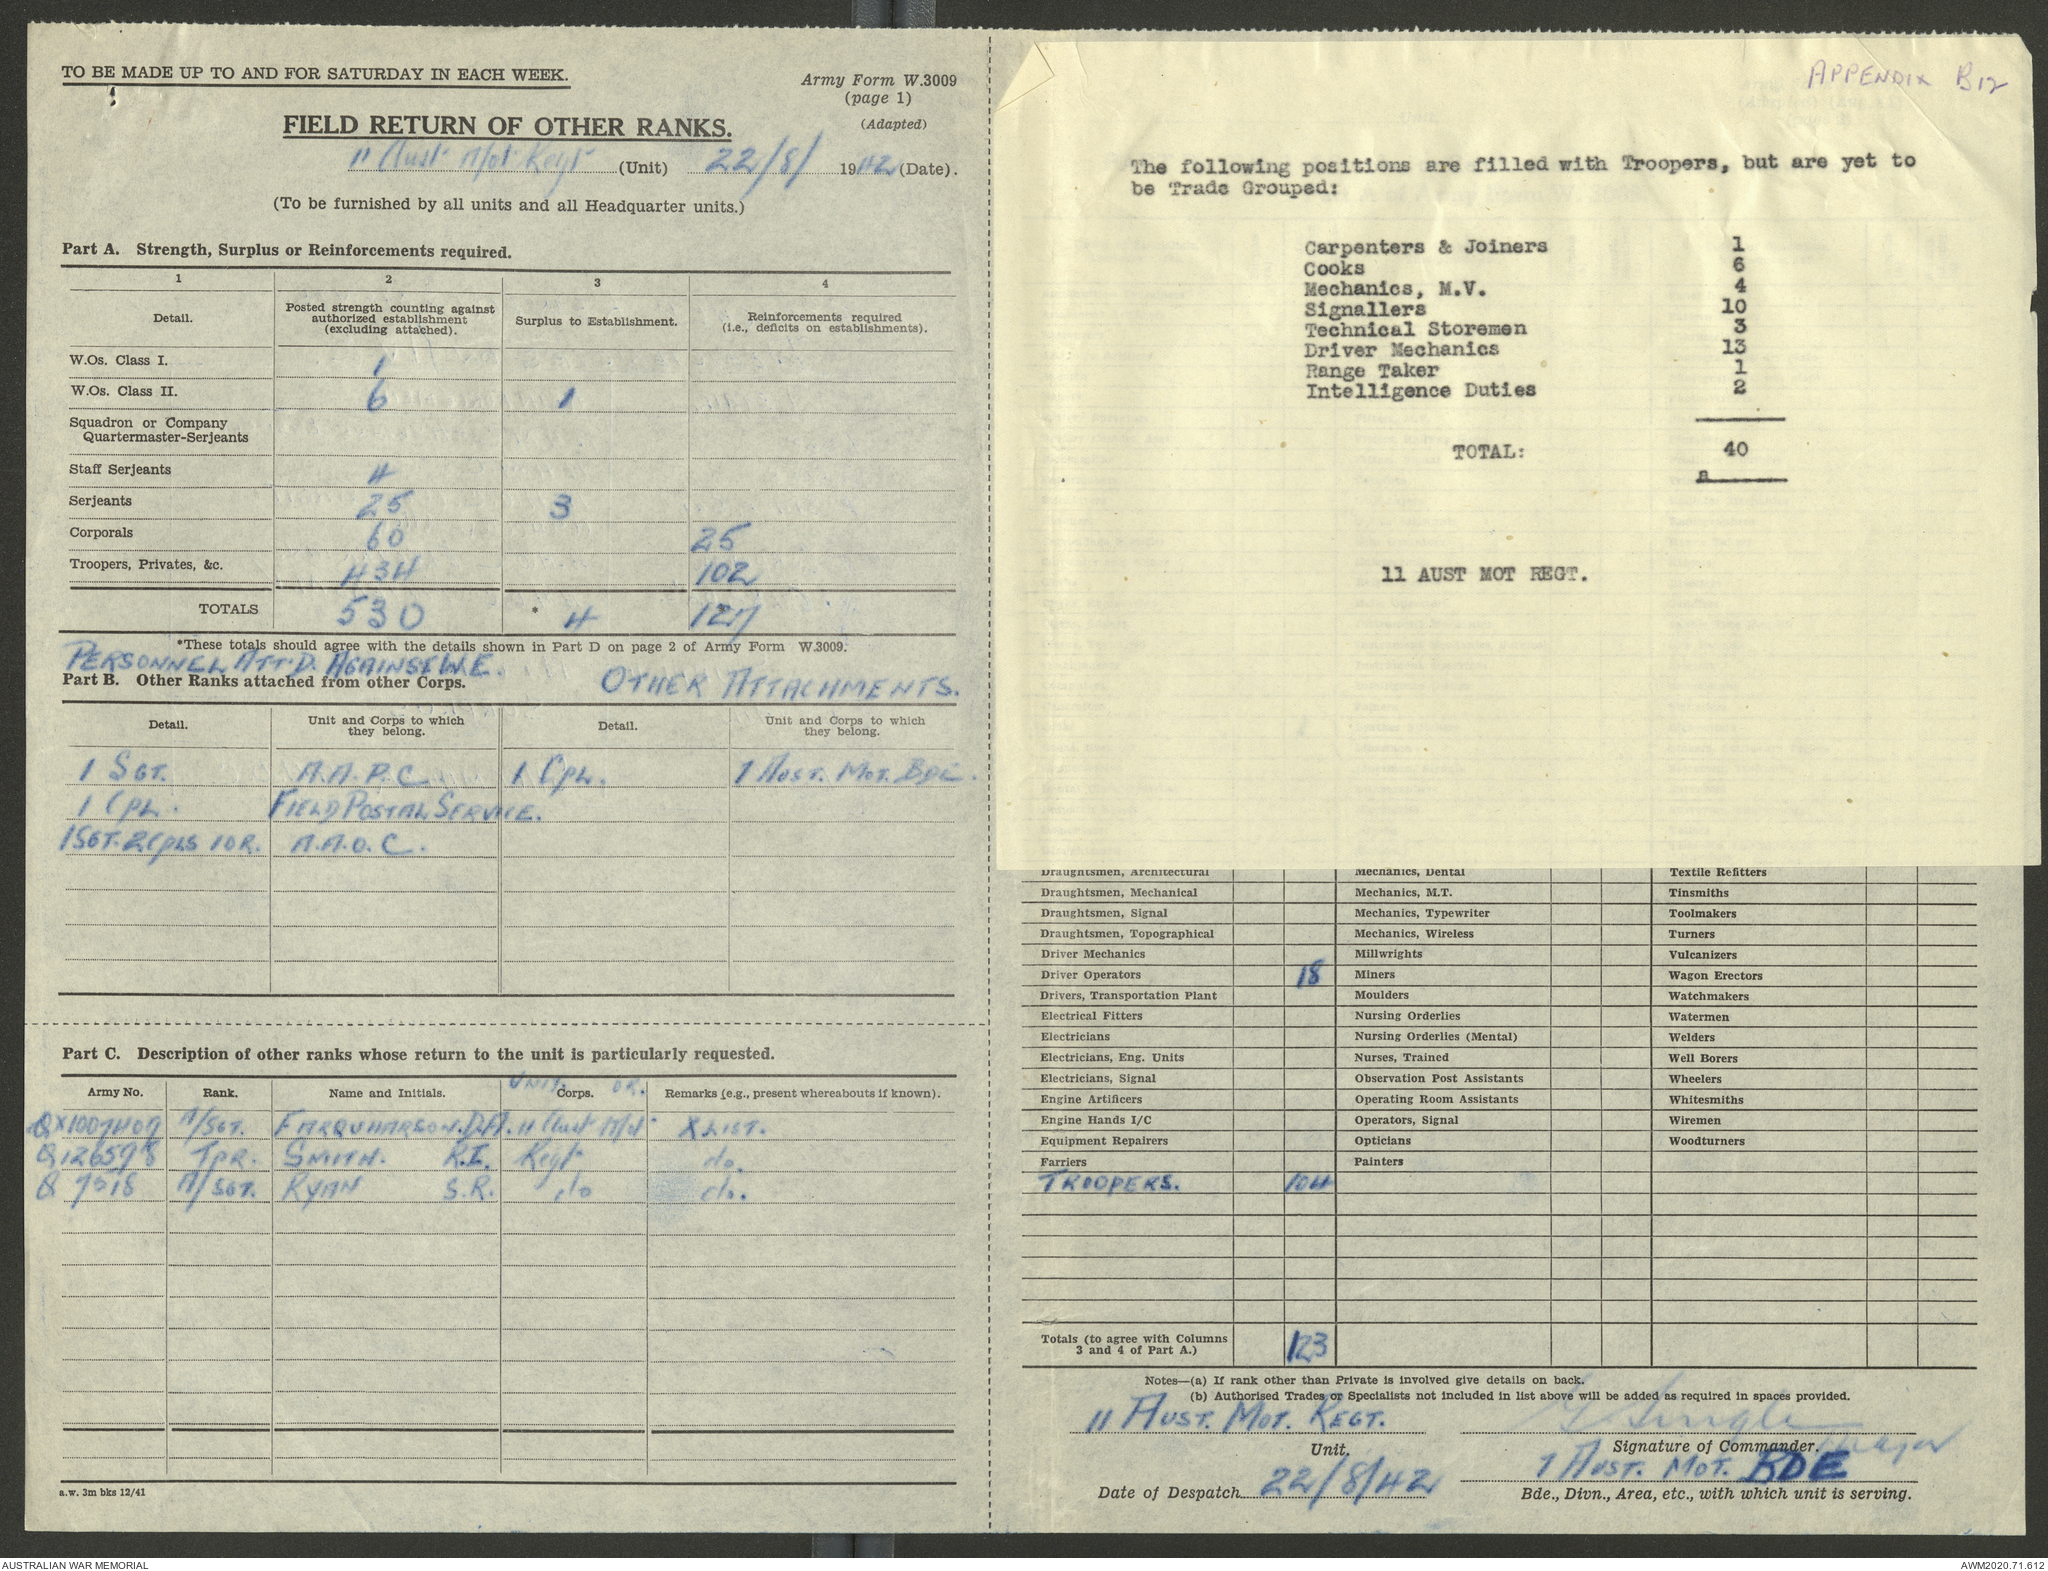 TO BE MADE UP TO AND FOR SATURDAY IN EACH WEEK.
Army Form W.3009
(page 1)
(Adapted)
FIELD RETURN OF OTHER RANKS.
11 Aust Mot Regt (Unit) 22/8/ 1942 (Date).
(To be furnished by all units and all Headquarter units.)
Part A. Strength, Surplus or Reinforcements required.
1 2 3 4
Detail. Posted strength counting against authorized establishment (excluding attached). Surplus to Establishment. Reinforcements required (i.e., deficits on establishments).
W.Os. Class I. 1
W.Os. Class II. 6 1
Squadron or Company
Quartermaster-Serjeants
Staff Serjeants 4
Serjeants 25 3
Corporals 60 25
Troopers, Privates, &c. 434 102
TOTALS 530 * 4 127
*These totals should agree with the details shown in Part D on page 2 of Army Form W.3009.
PERSONNEL ATT'D. AGAINST W.E.
Part B. Other Ranks attached from other Corps. OTHER ATTACHMENTS.
Detail. Unit and Corps to which they belong. Detail. Unit and Corps to which they belong.
1 SGT. A.A.P.C. 1 CPL. 7 AUST. MOT. BDE.
1 CPL. FIELD POSTAL SERVICE.
1 SGT. 2 CPLS 1 OR. A.A.O.C.
Part C. Description of other ranks whose return to the unit is particularly requested.
UNIT. OR.
Army No. Rank. Name and Initials. Corps. Remarks (e.g., present whereabouts if known).
QX1007407 A/SGT. FARQUHARSON. D.A. 11 Aust Mot X LIST.
Q126578 TPR. SMITH. R.I. Regt do.
Q 7518 A/SGT. RYAN S.R. do do.
a.w. 3m bks 12/41
APPENDIX B12
The following positions are filled with Troopers, but are yet to
be Trade Grouped:
Carpenters & Joiners 1
Cooks 6
Mechanics, M.V. 4
Signallers 10
Technical Storemen 3
Driver Mechanics 13
Range Taker 1
Intelligence Duties 2
TOTAL: 40
a
11 AUST MOT REGT.
Draughtsmen, Architectural Mechanics, Dental Textile Refitters
Draughtsmen, Mechanical Mechanics, M.T. Tinsmiths
Draughtsmen, Signal Mechanics, Typewriter Toolmakers
Draughtsmen, Topographical Mechanics, Wireless Turners
Driver Mechanics Millwrights Vulcanizers
Driver Operators 18 Miners Wagon Erectors
Drivers, Transportation Plant Moulders Watchmakers
Electrical Fitters Nursing Orderlies Watermen
Electricians Nursing Orderlies (Mental) Welders
Electricians, Eng. Units Nurses, Trained Well Borers
Electricians, Signal Observation Post Assistants Wheelers
Engine Artificers Operating Room Assistants Whitesmiths
Engine Hands I/C Operators, Signal Wiremen
Equipment Repairers Opticians Woodturners
Farriers Painters
TROOPERS. 104
Totals (to agree with Columns
3 and 4 of Part A.) 123
Notes—(a) If rank other than Private is involved give details on back.
(b) Authorised Trades or Specialists not included in list above will be added as required in spaces provided.
11 AUST. MOT. REGT.
Unit. Signature of Commander. Major
7 AUST. MOT. BDE
Date of Despatch 22/8/42 Bde., Divn., Area, etc., with which unit is serving.
AUSTRALIAN WAR MEMORIAL AWM2020.71.612